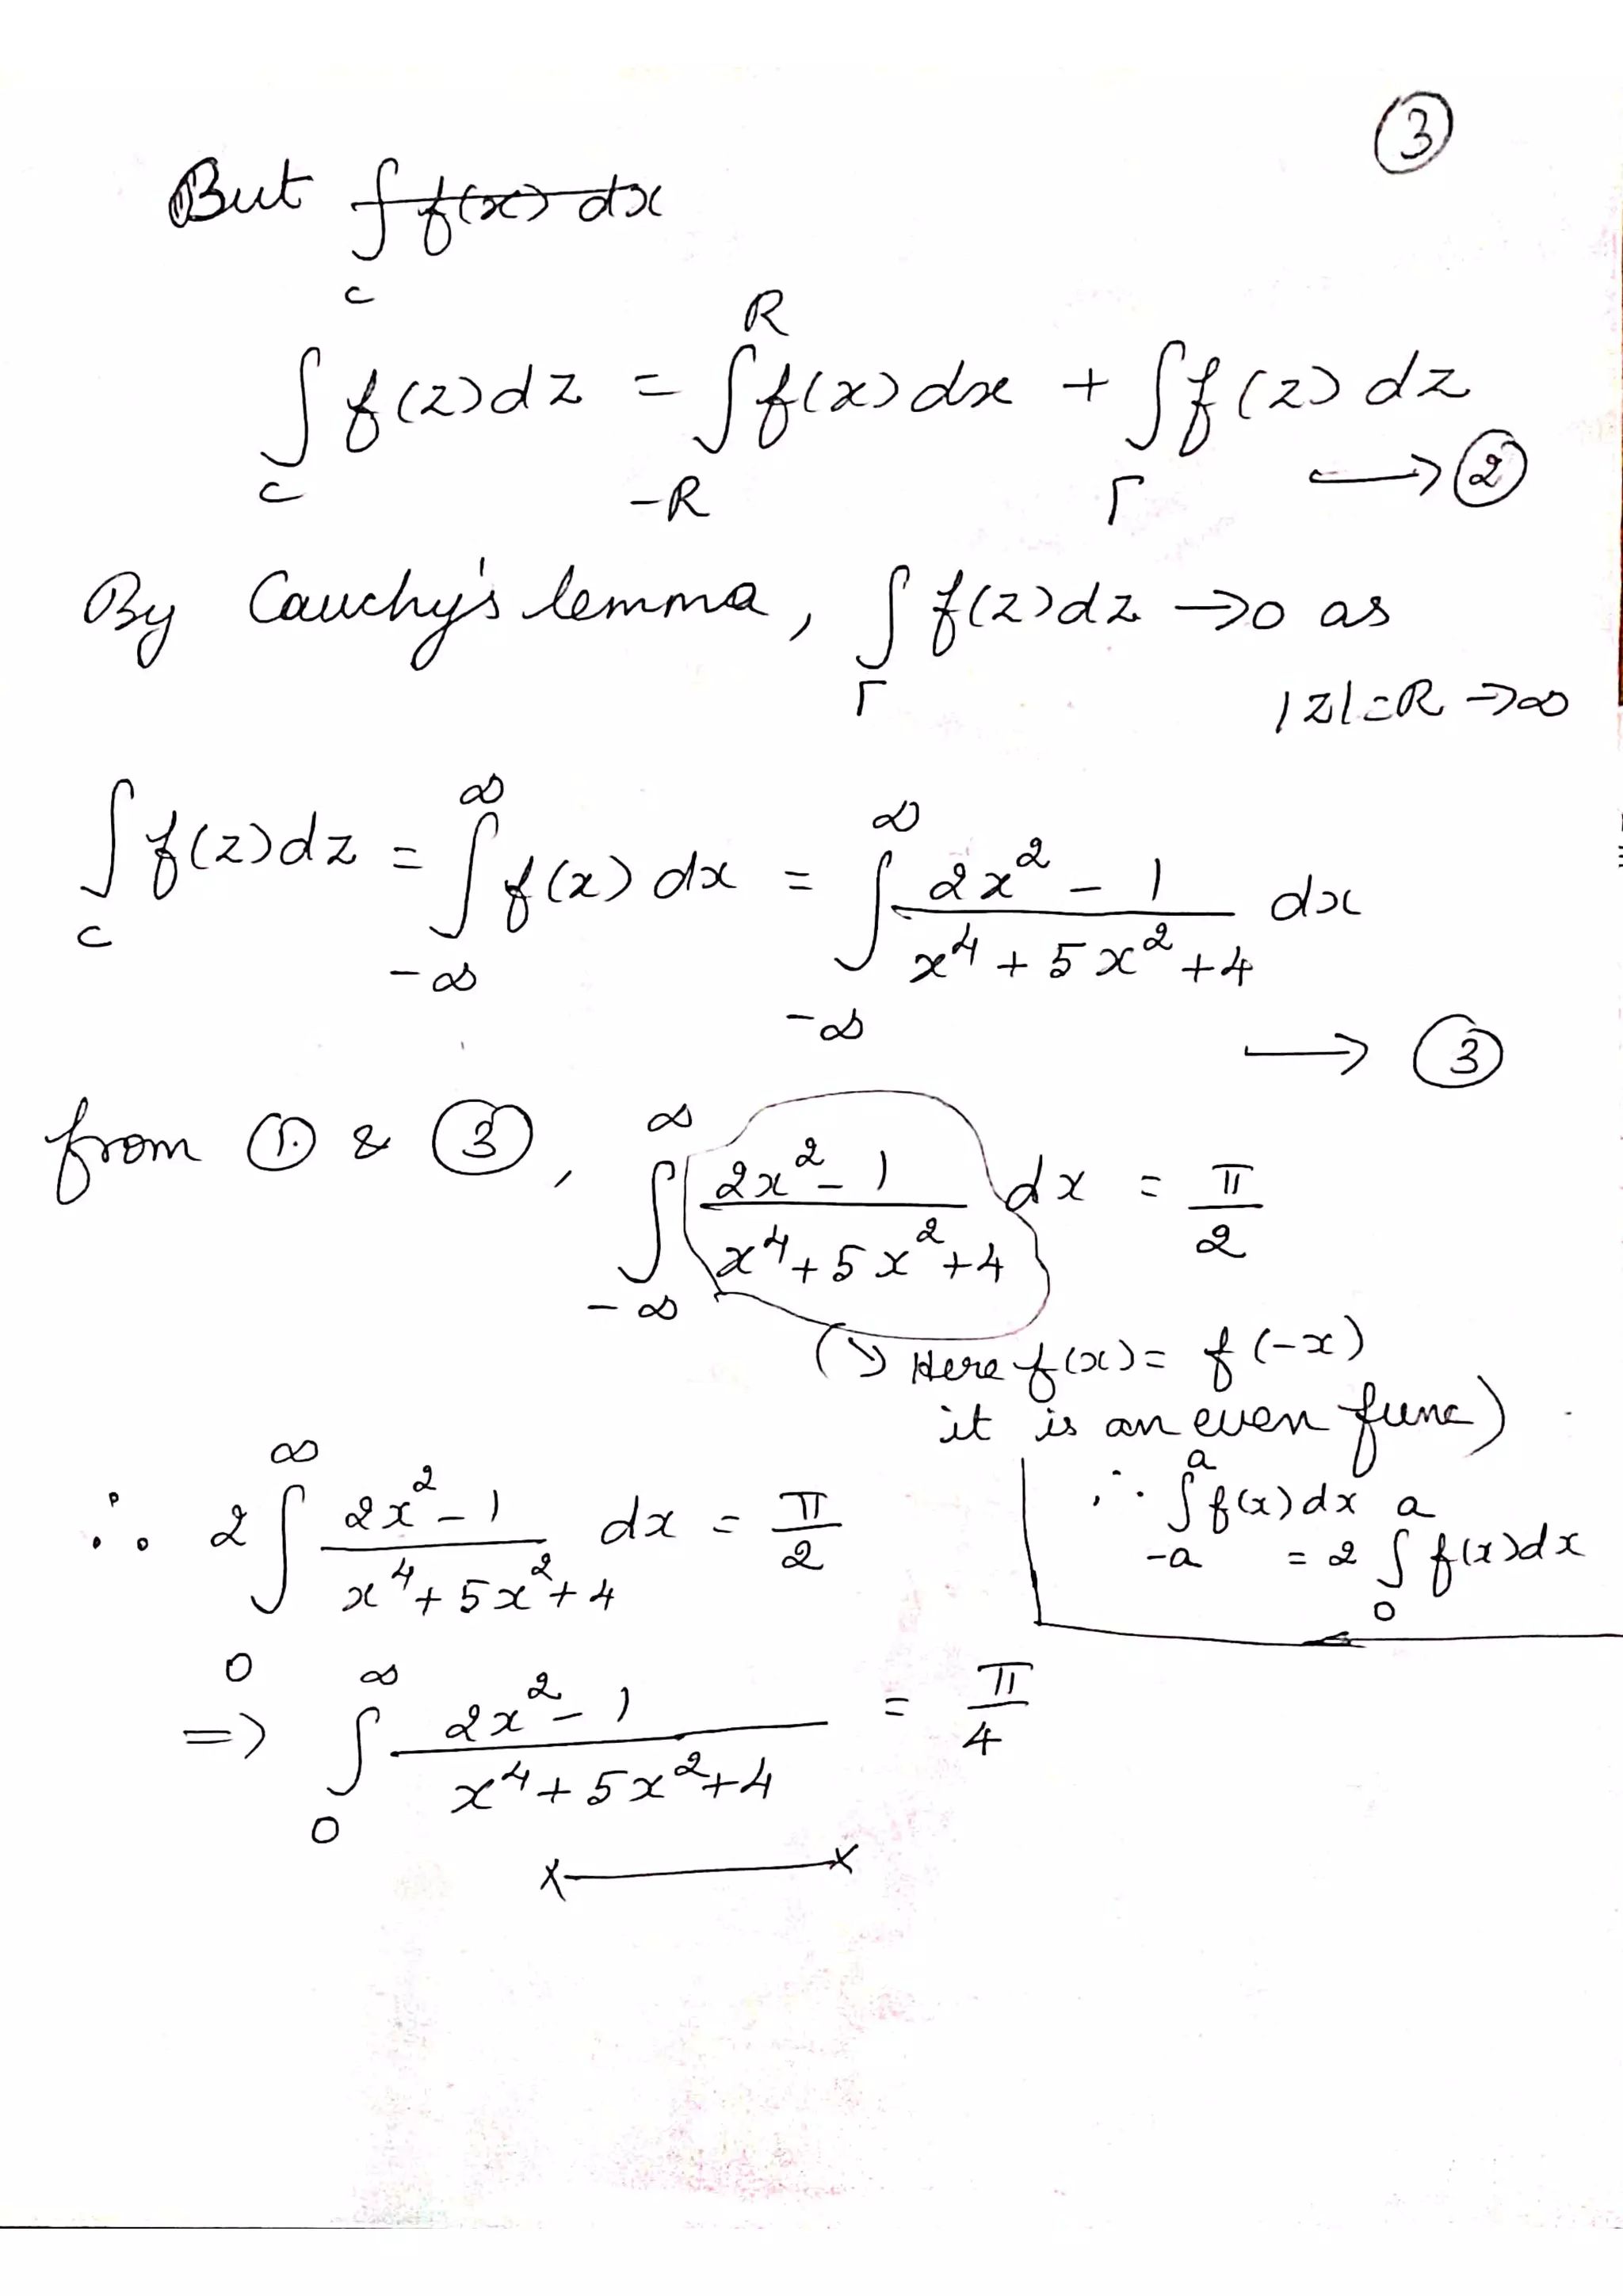 ③
But ∫_c f(x) dx
∫_c f(z)dz = ∫_{-R}^{R} f(x) dx + ∫_Γ f(z) dz ⟶ ②
By Cauchy's lemma, ∫_Γ f(z)dz → 0 as
|z| = R → ∞
∫_c f(z)dz = ∫_{-∞}^{∞} f(x) dx = ∫_{-∞}^{∞} (2x² - 1)/(x⁴ + 5x² + 4) dx
⟶ ③
from ① & ③, ∫_{-∞}^{∞} (2x² - 1)/(x⁴ + 5x² + 4) dx = π/2
(↘ Here f(x) = f(-x)
it is an even func)
∴ ∫_{-a}^{a} f(x) dx
= 2 ∫_0^a f(x)dx
∴ 2 ∫_0^∞ (2x² - 1)/(x⁴ + 5x² + 4) dx = π/2
=> ∫_0^∞ (2x² - 1)/(x⁴ + 5x² + 4) = π/4
x———x